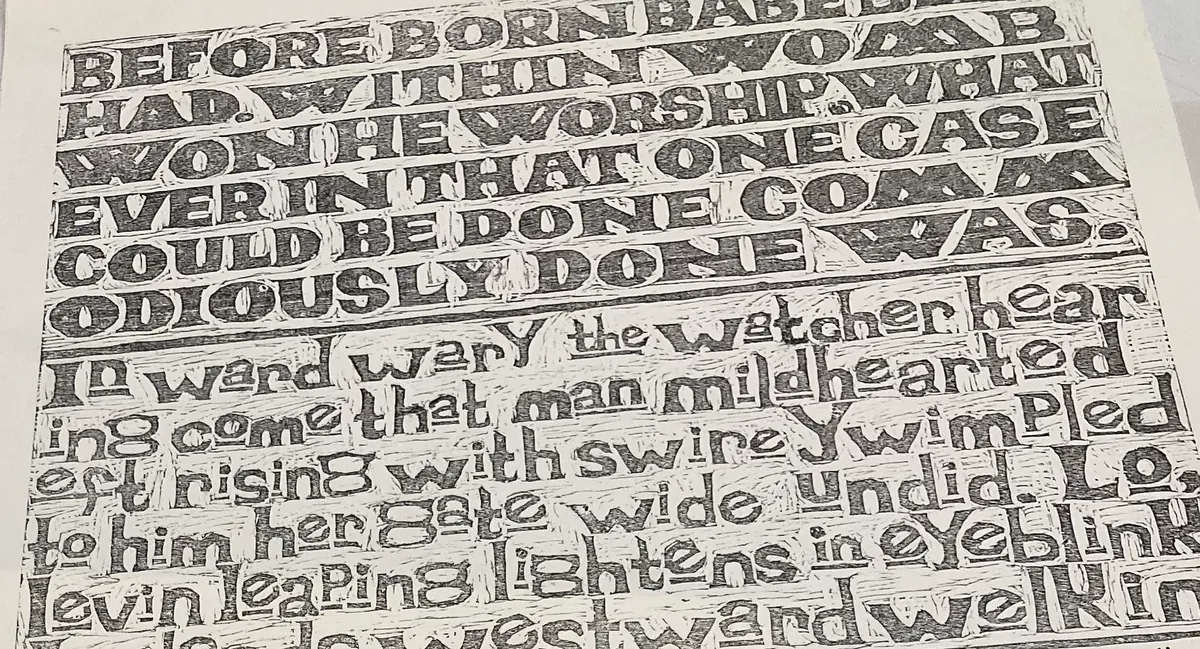 BEFORE BORN BABE
HAD. WITHIN WOMB
WON HE WORSHIP. WHAT
EVER IN THAT ONE CASE
COULD BE DONE COMM
ODIOUSLY DONE WAS.
In ward wary the watcher hear
ing come that man mildhearted
eft rising with swire ywimpled
to him her gate wide undid. Lo,
levin leaping lightens in eyeblink
westward welkin